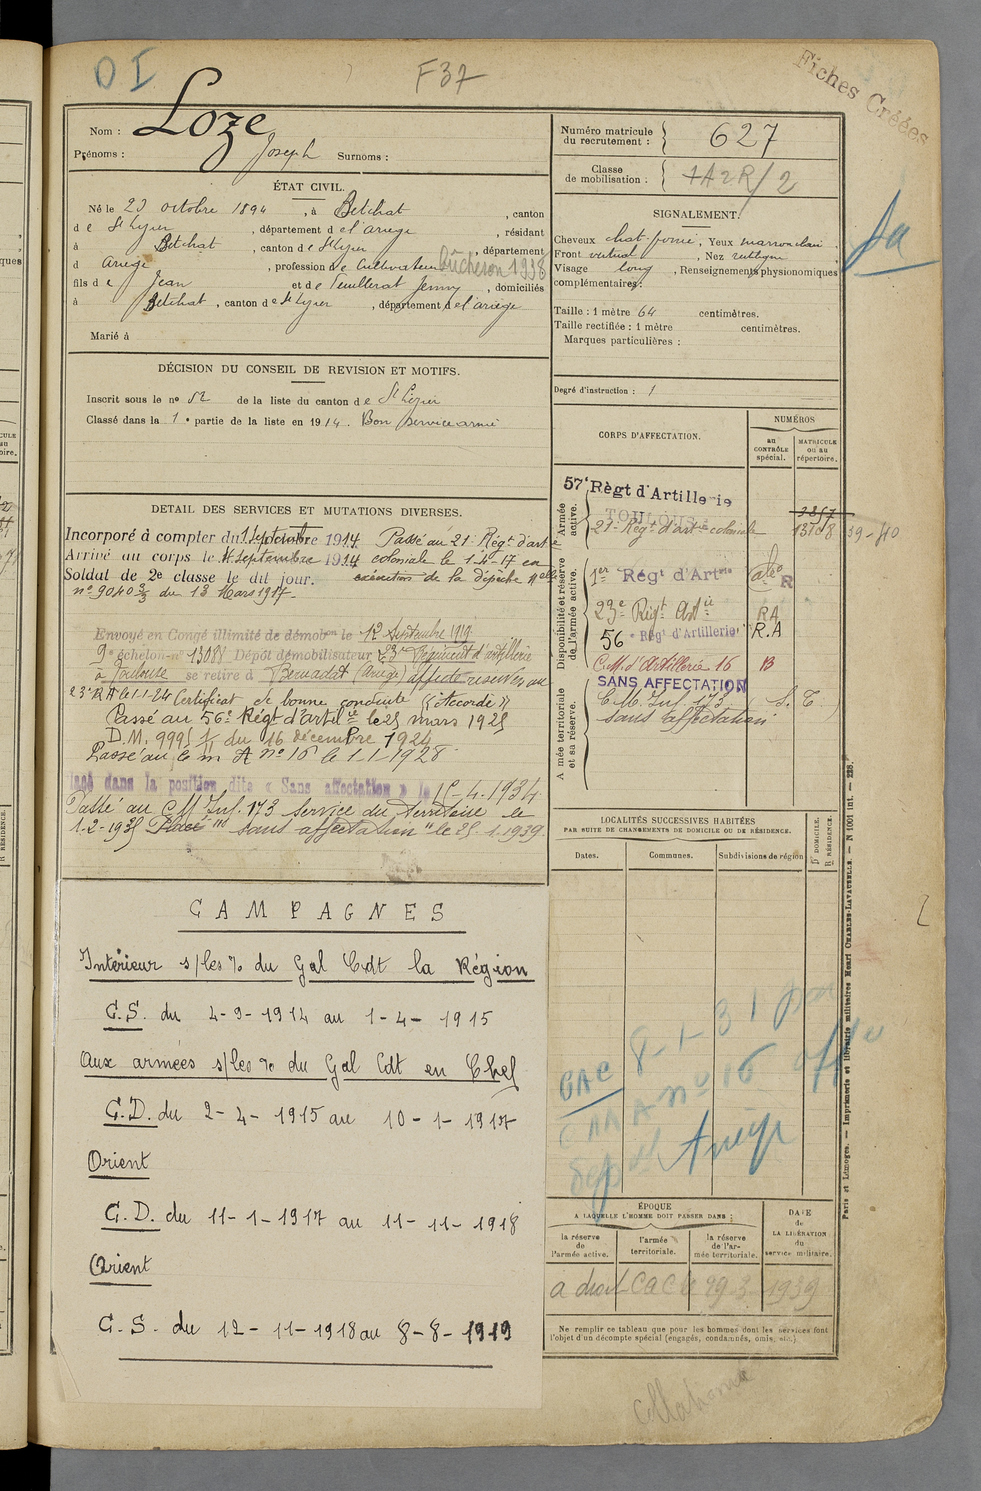 O I
F37
Fiches Créées
Nom : Loze
Prénoms : Joseph Surnoms :
ÉTAT CIVIL.
Né le 23 octobre 1894, à Betchat, canton
de St Lizier, département de l'ariege, résidant
à Betchat, canton de St Lizier, département
d ariege, profession de Cultivateur Bûcheron 1938
fils de Jean et de Feuillerat Jenny, domiciliés
à Betchat, canton de St Lizier, département de l'ariege
Marié à
DÉCISION DU CONSEIL DE REVISION ET MOTIFS.
Inscrit sous le no 52 de la liste du canton de St Lizier
Classé dans la 1e partie de la liste en 1914. Bon service armé
DETAIL DES SERVICES ET MUTATIONS DIVERSES.
Incorporé à compter du 1 septembre 1914 Passé au 21e Régt d'artie
Arrivé au corps le 4 septembre 1914 coloniale le 1-4-17 en
Soldat de 2e classe le dit jour. exécution de la dépêche Mlle
no 9040 3/3 du 13 Mars 1917-
Envoyé en Congé illimité de démobon le 12 Septembre 1919
9e échelon no 13088 Dépôt démobilisateur 23e Régiment d'artillerie
à Toulouse se retire à (Ariège) affecté réserves au
23e RA le 1-1-24 Certificat de bonne conduite "Accordé"
Passé au 56e Régt d'artillie le 25 mars 1925
D.M. 9995 1/ du 16 décembre 1924
Passé au c m A no 16 le 1-1-1928
lacé dans la position dite « Sans affectation » le 15-4-1934
Passé au CM Inf. 173 service du territoire le
1-2-1935 Placé "sans affectation" le 25.1.1939.
CAMPAGNES
Intérieur s/les % du Gal Cdt la Région
C.S. du 4-9-1914 au 1-4-1915
Aux armées s/les % du Gal Cdt en Chef
C.D. du 2-4-1915 au 10-1-1917
Orient
C.D. du 11-1-1917 au 11-11-1918
Orient
C.S. du 12-11-1918 au 8-8-1919
Numéro matricule du recrutement : 627
Classe de mobilisation : 1A2R/2
SIGNALEMENT.
Cheveux chat foncé, Yeux marron clair,
Front vertical, Nez rectiligne
Visage long, Renseignements physionomiques
complémentaires :
Taille : 1 mètre 64 centimètres.
Taille rectifiée : 1 mètre centimètres.
Marques particulières :
Degré d'instruction : 1
CORPS D'AFFECTATION.
NUMÉROS
au CONTRÔLE spécial.
MATRICULE ou au répertoire.
Armée active.
57e Règt d'Artillerie
TOULOUSE
21e Régt d'artie coloniale 13708 39-40
Disponibilité et réserve de l'armée active.
1er Régt d'Artie R
23e Régt Artie RA
56e Régt d'Artillerie R.A
C.M. d'Artillerie 16 B
Armée territoriale et sa réserve.
SANS AFFECTATION
C.M. Inf. 173 S.T.
sans affectation
LOCALITÉS SUCCESSIVES HABITÉES
PAR SUITE DE CHANGEMENTS DE DOMICILE OU DE RÉSIDENCE.
Dates. Communes. Subdivisions de région
D DOMICILE. R RÉSIDENCE.
CAC 8-1-31
CMA no 16
Ariège
ÉPOQUE
A LAQUELLE L'HOMME DOIT PASSER DANS :
la réserve de l'armée active.
l'armée territoriale.
la réserve de l'armée territoriale.
DATE de LA LIBÉRATION du service militaire.
a droit CAC le 29-3-1939
Ne remplir ce tableau que pour les hommes dont les services font
l'objet d'un décompte spécial (engagés, condamnés, omis, etc.).
Paris et Limoges. — Imprimerie et librairie militaires Henri CHARLES-LAVAUZELLE. — N 1001 int. — 228.